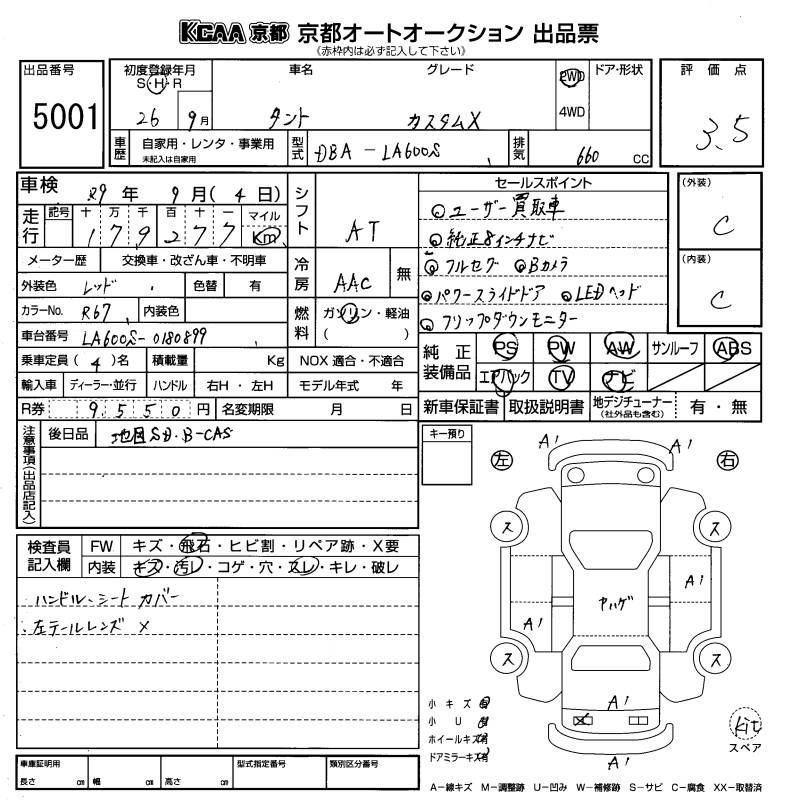 KCAA 京都 京都オートオークション 出品票
(赤枠内は必ず記入して下さい)
出品番号
5001
初度登録年月
S・H・R
26 9月
車名
タント
グレード
カスタムX
2WD
4WD
ドア・形状
評価点
3.5
車歴
自家用・レンタ・事業用
未記入は自家用
型式
DBA-LA600S
排気
660 CC
車検
R9年 9月(4日)
走行
記号 十 万 千 百 十 一 マイル
1 7 9 2 7 7 Km
メーター歴 交換車・改ざん車・不明車
外装色 レッド 色替 有
カラーNo. R67 内装色
車台番号 LA600S-0180899
乗車定員 (4)名 積載量 Kg
輸入車 ディーラー・並行 ハンドル 右H・左H
R券 9550円 名変期限 月 日
シフト
AT
冷房
AAC 無
燃料
ガソリン・軽油
( )
NOX 適合・不適合
モデル年式 年
セールスポイント
◎ユーザー買取車
◎純正8インチナビ
◎フルセグ ◎Bカメラ
◎パワースライドドア ◎LEDヘッド
◎フリップダウンモニター
(外装)
C
(内装)
C
純正装備品
PS PW AW サンルーフ ABS
エアバック TV ナビ
新車保証書 取扱説明書 地デジチューナー
(社外品も含む) 有・無
注意事項(出品店記入)
後日品 地図SD・B-CAS
キー預り
検査員記入欄
FW キズ・飛石・ヒビ割・リペア跡・X要
内装 キズ・汚レ・コゲ・穴・スレ・キレ・破レ
ハンドル・シートカバー
左テールレンズ X
左
右
A1
A1
ス
ス
A1
A1
ヤハゲ
ス
ス
A1
A1
小キズ有
小U有
ホイールキズ有
ドアミラーキズ有
Kit
スペア
車庫証明用
長さ cm 幅 cm 高さ cm
型式指定番号
類別区分番号
A-線キズ M-調整跡 U-凹み W-補修跡 S-サビ C-腐食 XX-取替済